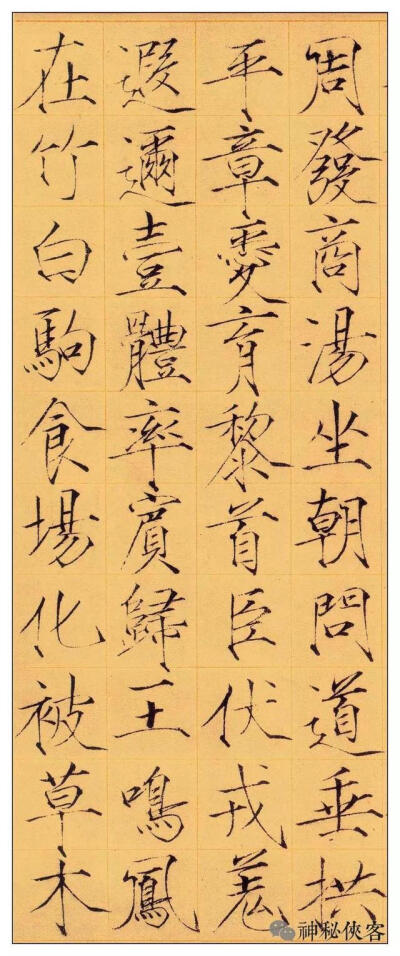 周發商湯坐朝問道垂拱
平章愛育黎首臣伏戎羌
遐邇壹體率賓歸王鳴鳳
在竹白駒食場化被草木
神秘俠客